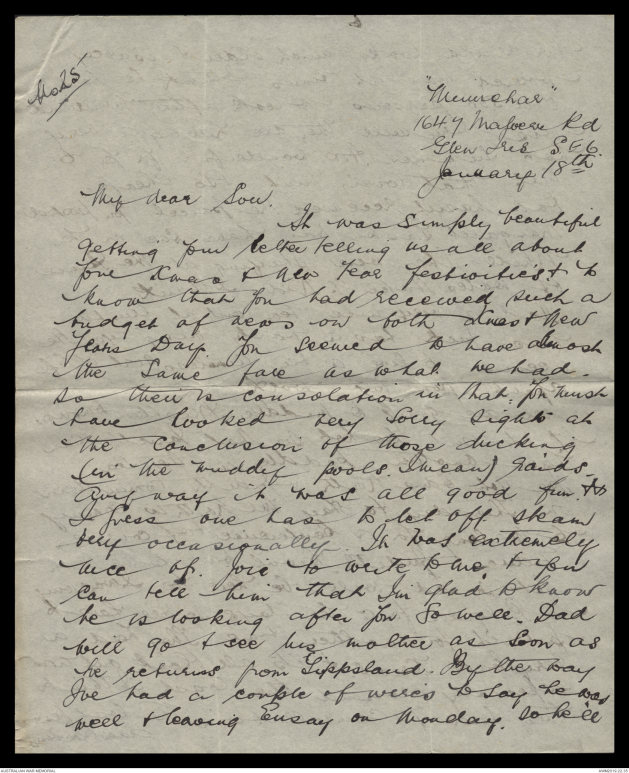 No 25
"Muirshar"
1647 Malvern Rd
Glen Iris S.E.6.
January 18th
My dear Son.
It was simply beautiful
getting your letter telling us all about
your Xmas & New Year festivities & to
know that you had received such a
budget of news on both Xmas & New
Years Day. You seemed to have almost
the same fare as what we had.
so their is consolation in that. You must
have looked very sorry sights at
the conclusion of those ducking
(in the muddy pools I mean) raids.
Any way it was all good fun. & 
I guess one has to let off steam
very occasionally. It was extremely
nice of Vic to write to me, & you
can tell him that I'm glad to know
he is looking after you so well. Dad
will go & see his mother as soon as
he returns from Gippsland. By the way
I've had a couple of wires to say he was
well & leaving Ensay on Monday. so he'll
AUSTRALIAN WAR MEMORIAL